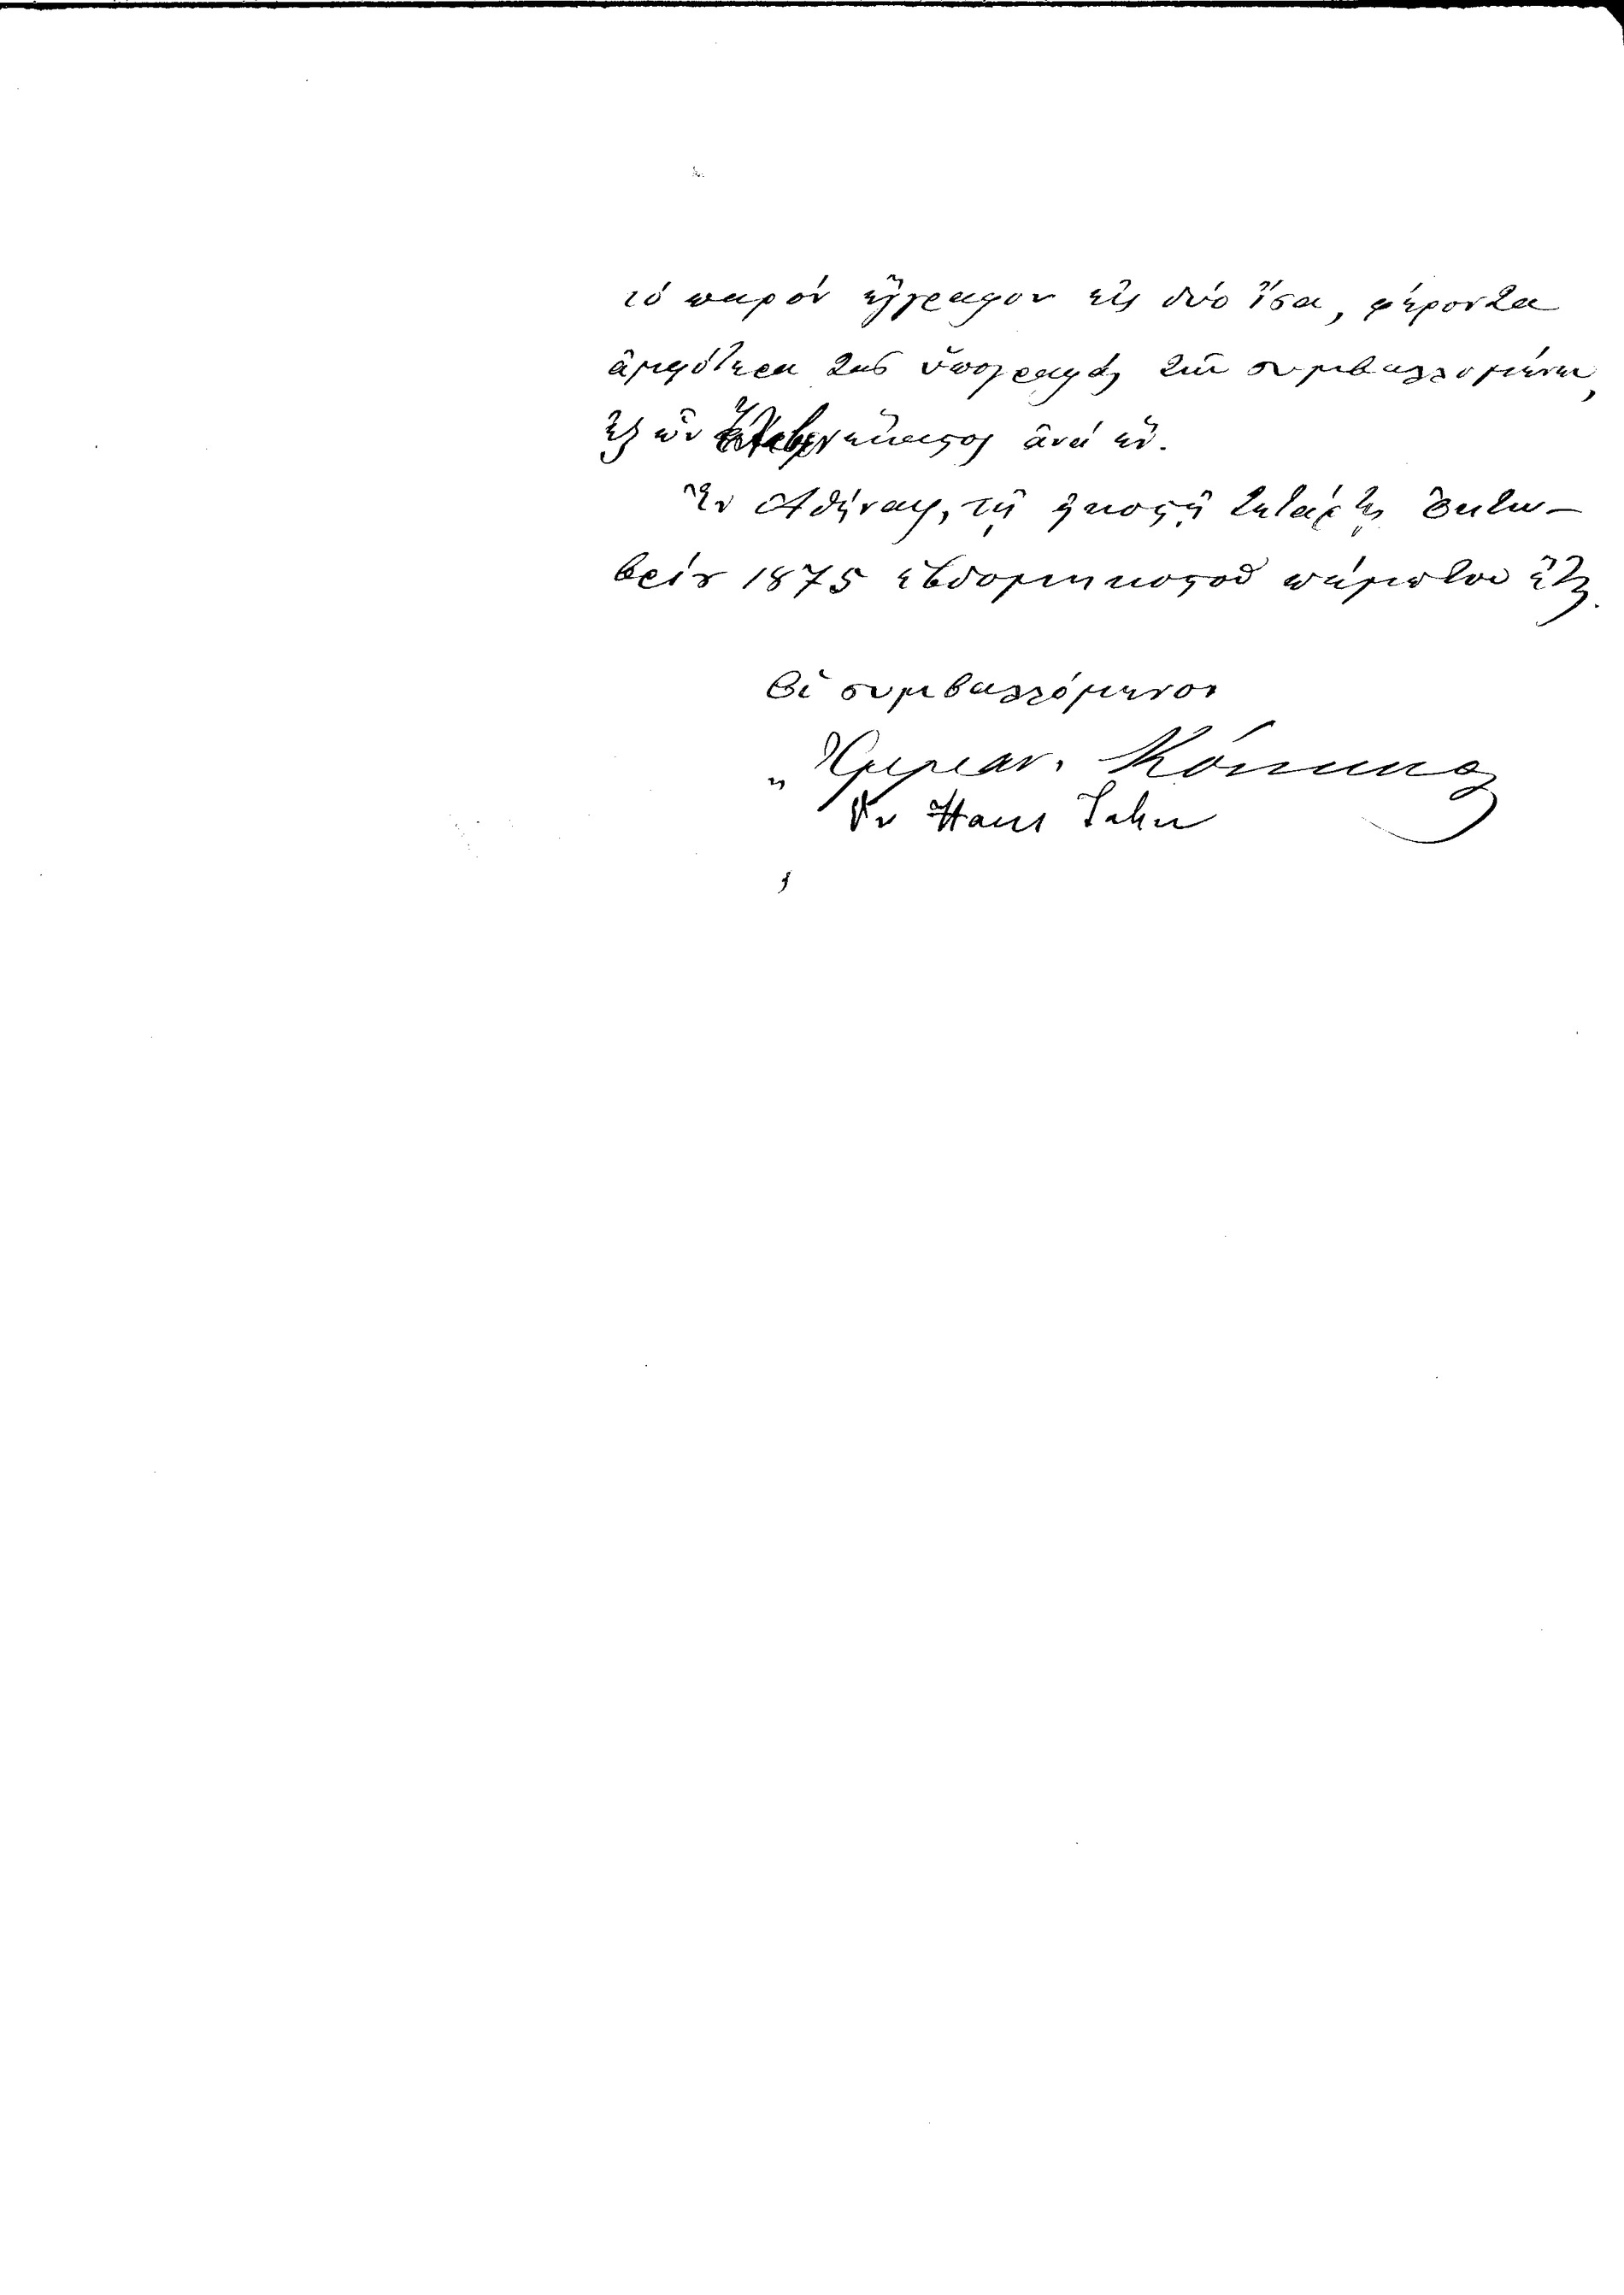 τό παρόν ἔγγραφον εἰς δύο ἴσα, φέροντα
ἀμφότερα τὰς ὑπογραφάς τῶν συμβαλλομένων,
ἐξ ὧν ἔλαβεν ἕκαστος ἀνά ἕν.
Ἐν Ἀθήναις, τῇ εἰκοστῇ τετάρτῃ Ὀκτω-
βρίου 1875 ἑβδομηκοστοῦ πέμπτου ἔτους.
Οἱ συμβαλλόμενοι
Ἑρμαν.
Dr Hans Jahn